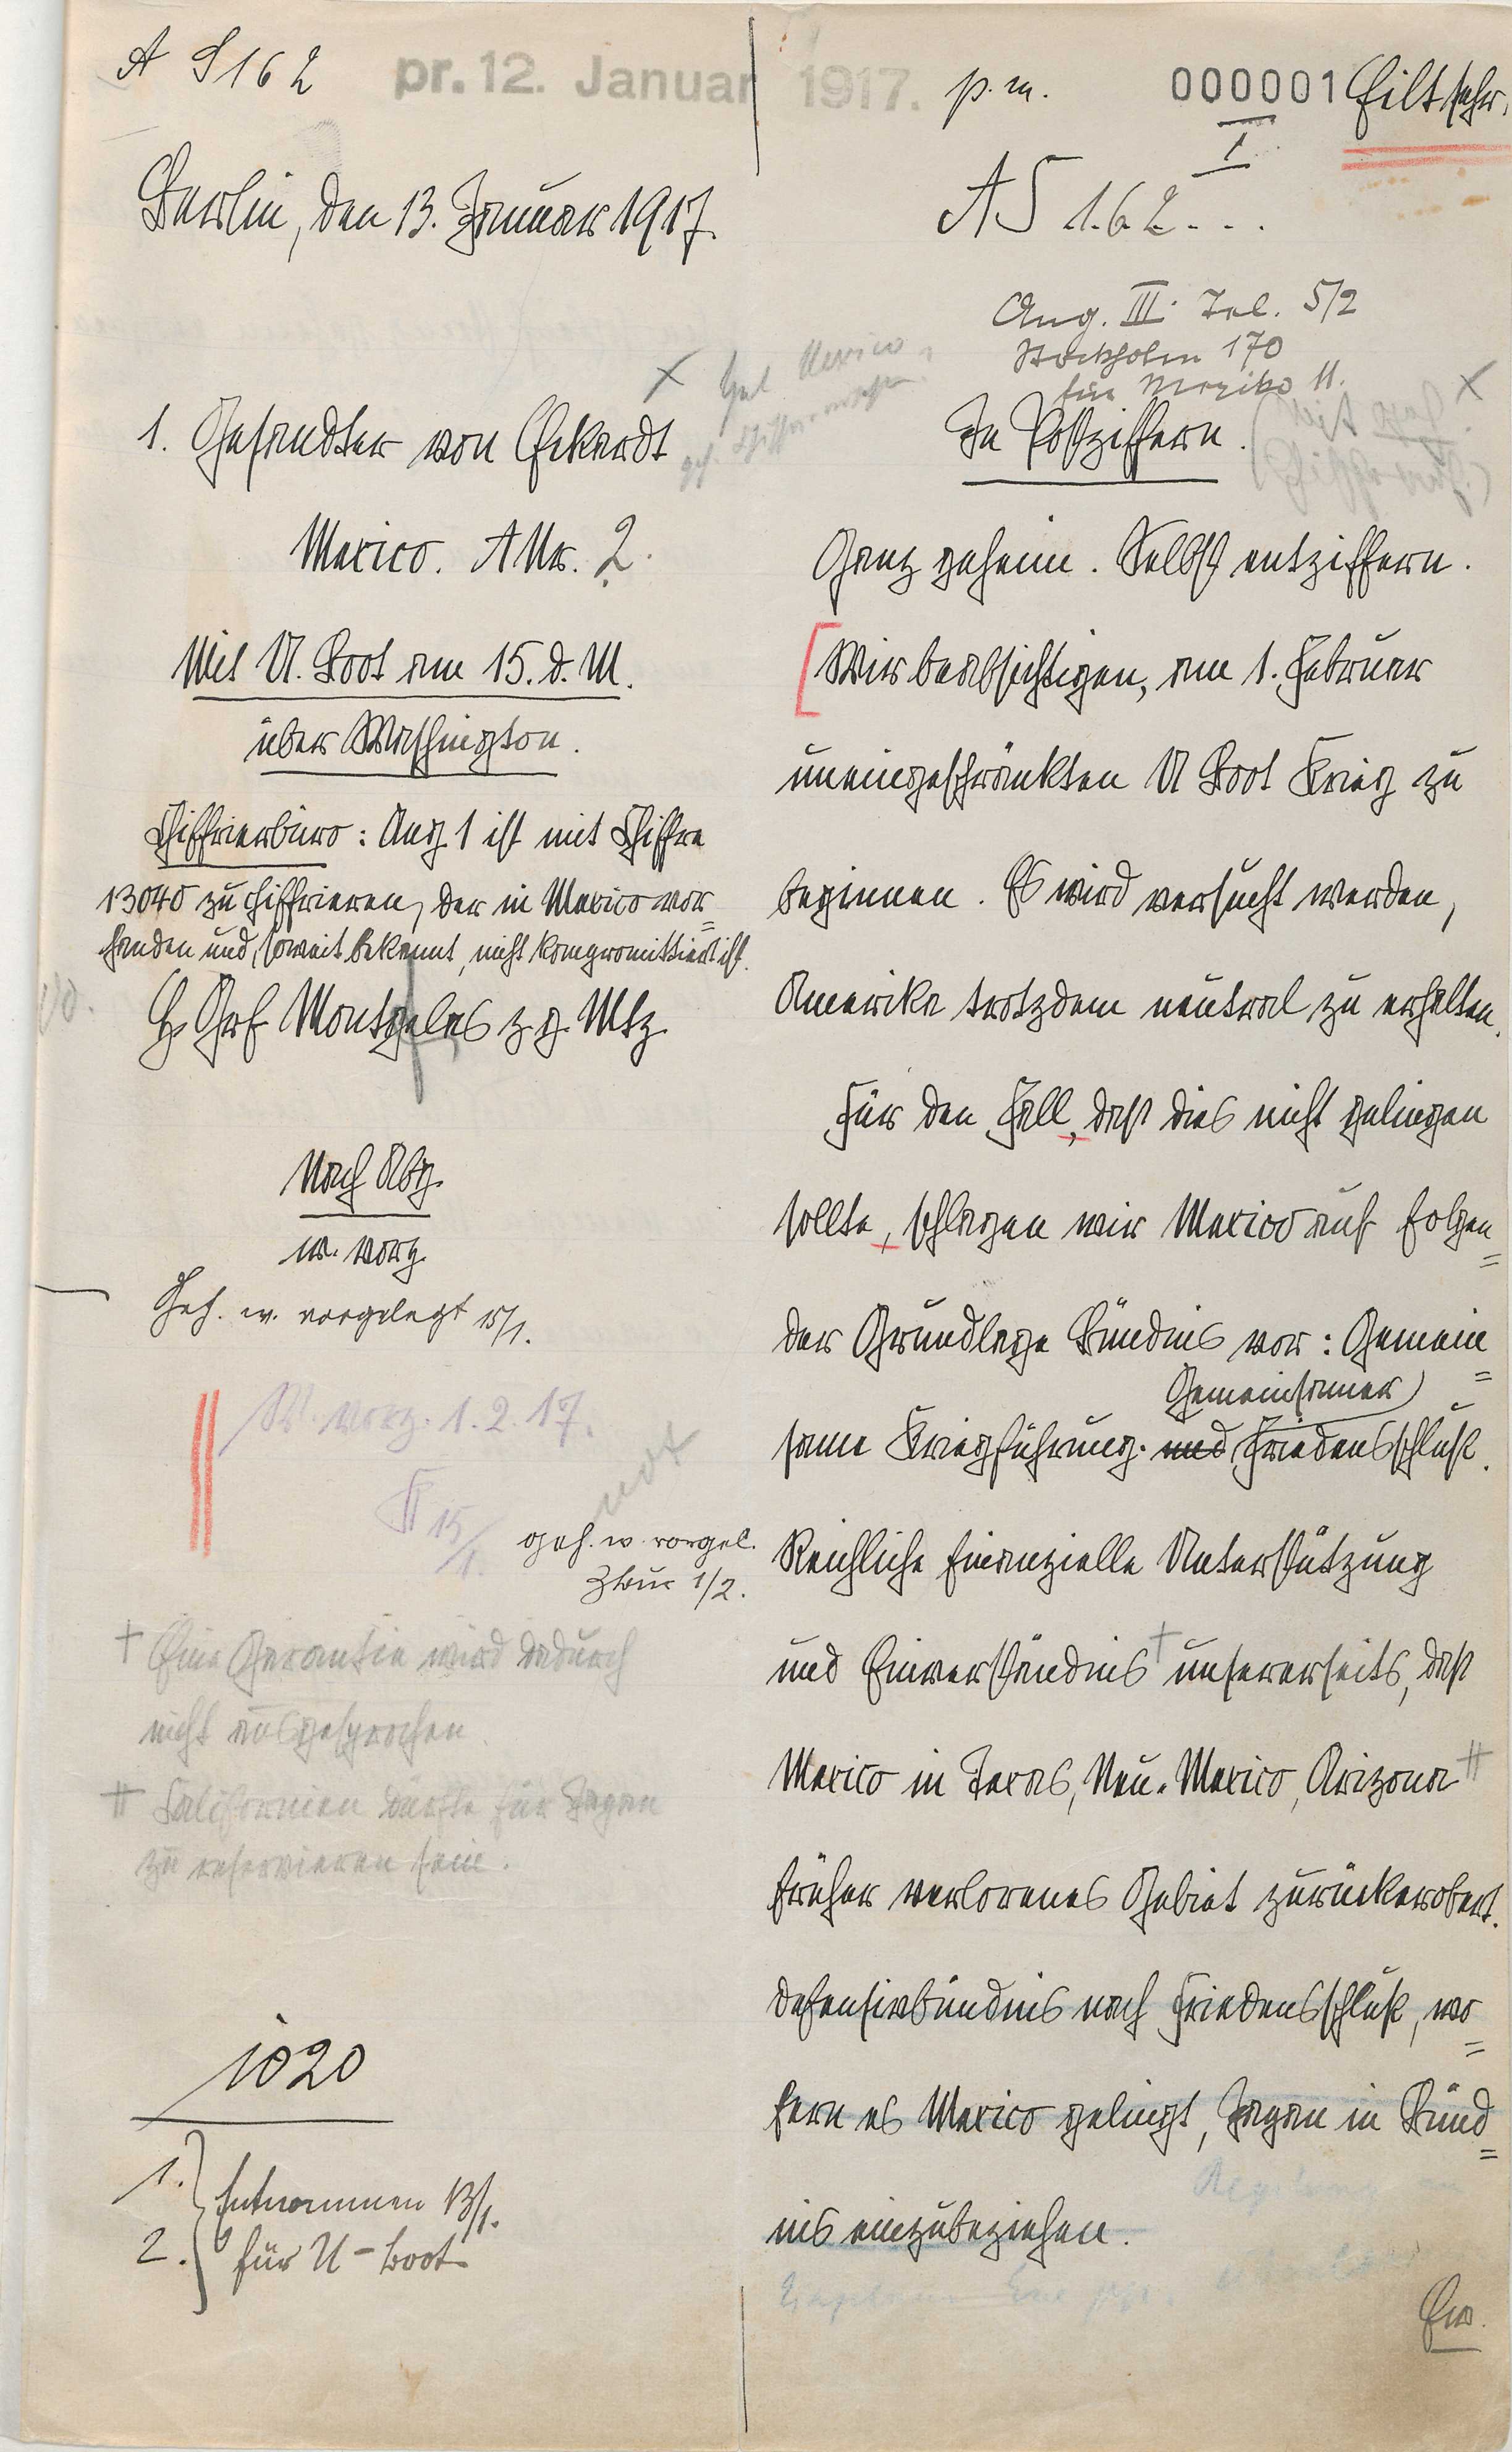 A S 162
pr. 12. Januar 1917. p. m.
000001
Eilt sehr.
I
1
Berlin, den 13. Januar 1917.
AS 162...
Ang. III. Tel. 5/2
Stockholm 170
für Mexiko 11.
1. Gesandter von Eckardt
Mexico. A Nr. 2.
Mit U. Boot am 15. d. M.
über Washington.
Chiffrierbüro: Ang 1 ist mit Chiffre
13040 zu chiffrieren, der in Mexico vor=
handen und, soweit bekannt, nicht kompromittiert ist.
H. Grf Montgelas z. g. Mtz.
Nach Abg.
w. vorg.
Geh. w. vorgelegt 15/1.
W. vorg. 1. 2. 17.
15/1.
geh. w. vorgel.
1/2.
† Eine Garantie wird dadurch
nicht ausgesprochen.
⧺ Californien dürfte für Japan
zu reservieren sein.
1020
1. } Entnommen 13/1.
2. } für U-boot
In Postziffern.
Ganz geheim. Selbst entziffern.
[Wir beabsichtigen, am 1. Februar
uneingeschränkten U Boot Krieg zu
beginnen. Es wird versucht werden,
Amerika trotzdem neutral zu erhalten.
Für den Fall, daß dies nicht gelingen
sollte, schlagen wir Mexico auf folgen=
der Grundlage Bündnis vor: Gemein=
Gemeinsamer
same Kriegführung. und Friedensschluß.
Reichliche finanzielle Unterstützung
und Einverständnis† unsererseits, daß
Mexico in Texas, Neu-Mexico, Arizona⧺
früher verlorenes Gebiet zurückerobert.
Defensivbündnis nach Friedensschluß, wo=
fern es Mexico gelingt, Japan in Bünd=
nis einzubeziehen.
Ew.